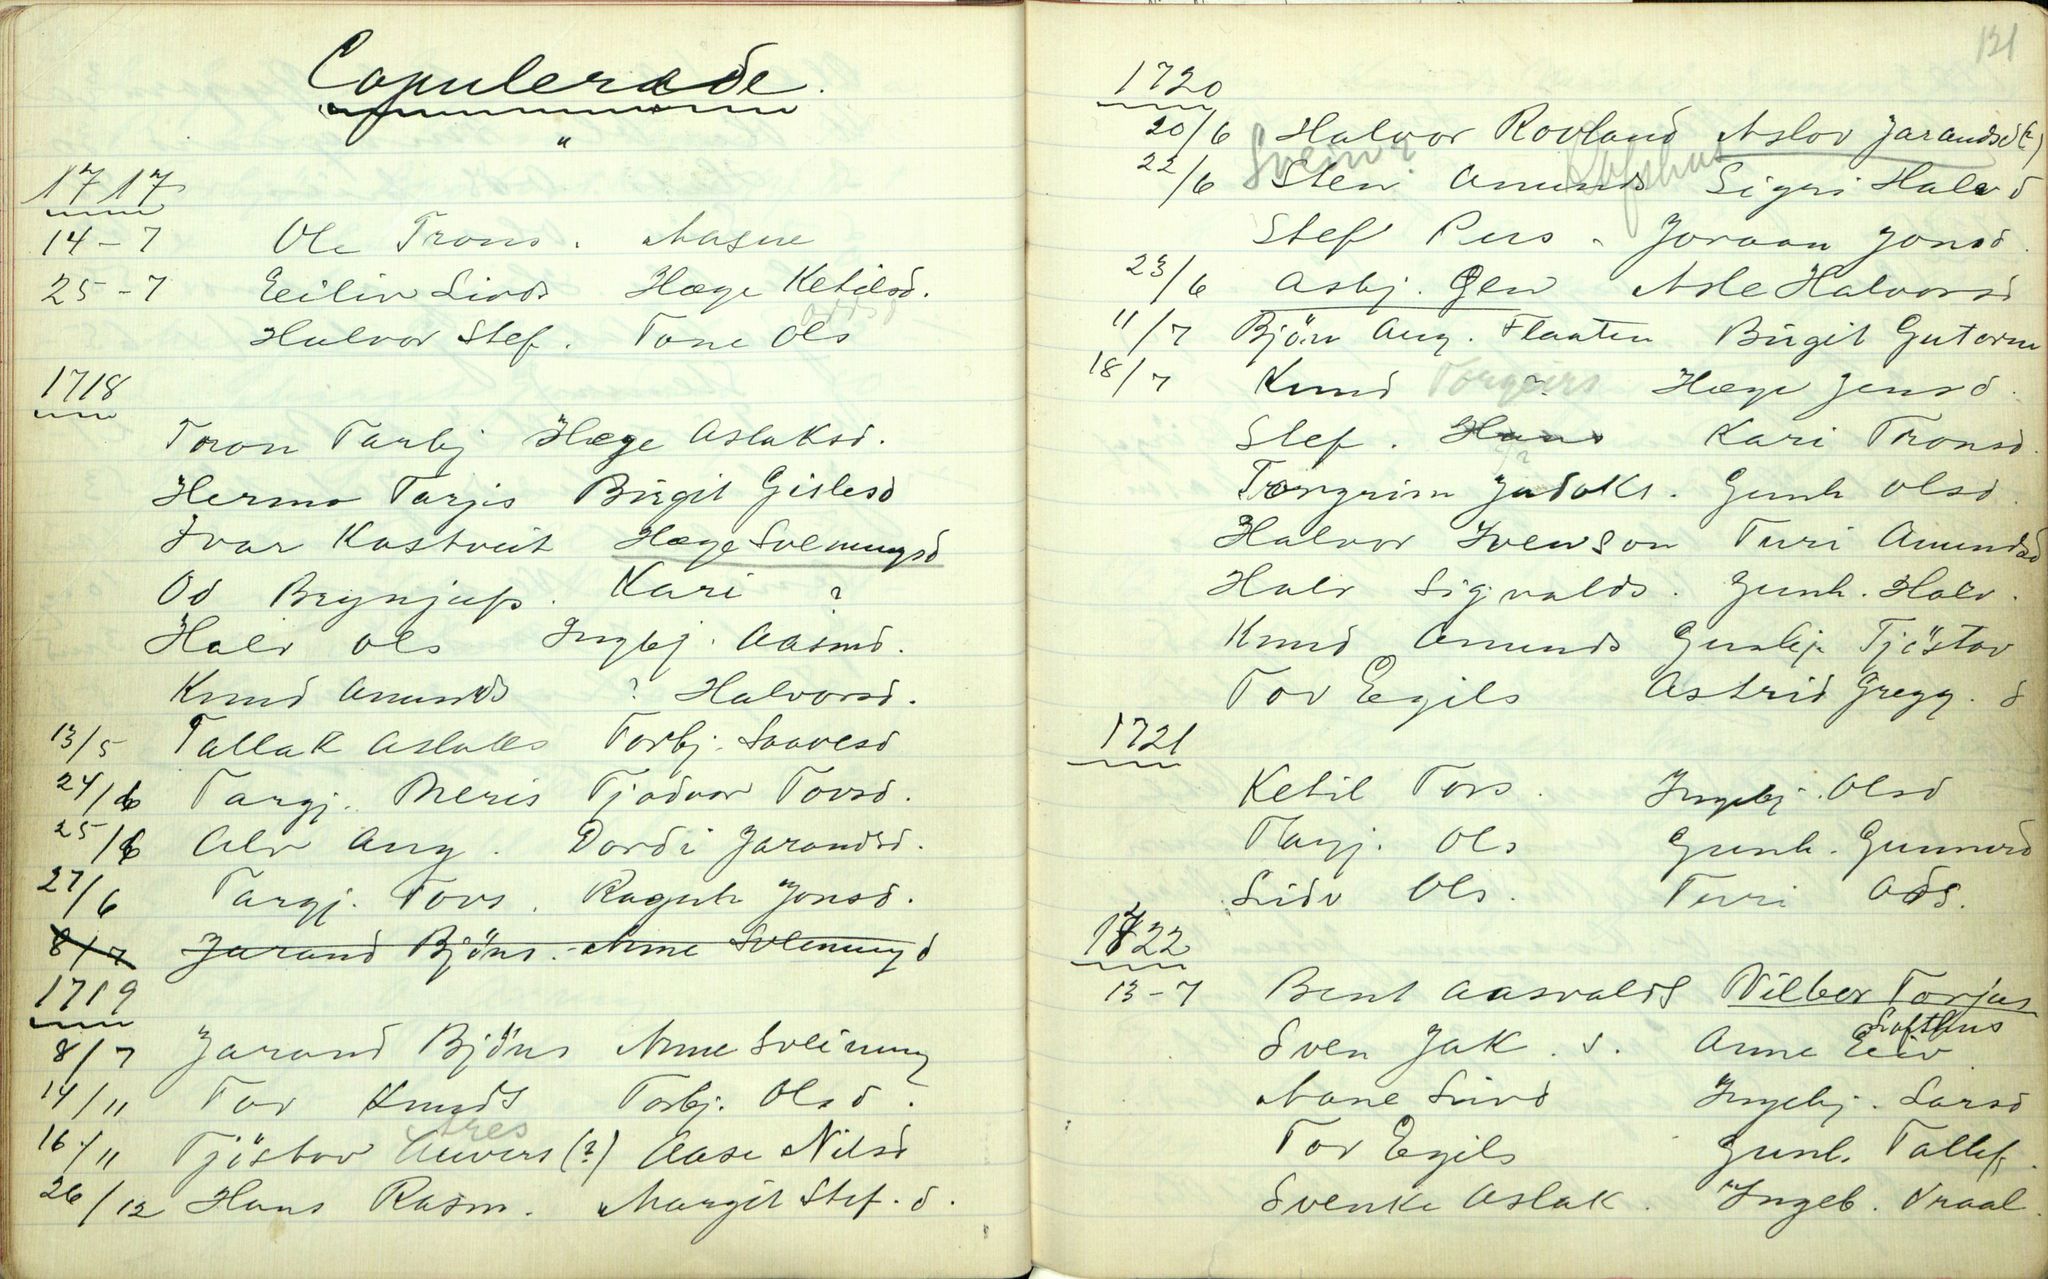 Copulerade.
"
1717
14-7 Ole Trons. Aasne
25-7 Eiliv Livds Hæge Ketilsd.
Odds
Halvor Stef. Tone Ols
1718
Tron Tarbj Hæge Aslaksd.
Hermo Tarjis Birgit Gislesd
Ivar Kostveit Hæge Sveinungsd
Od Brynjufs. Kari ?
Halv Ols Ingbj. Aasmd.
Knud Amunds ? Halvorsd.
13/5 Tallak Aslaks Torbj. Saavesd
24/6 Targj. Neris Tjodvor Tovsd.
25/6 Alv Aug. Dordi Jarandsd.
27/6 Targj. Tovs. Ragnh Jonsd.
8/7 Jarand Björns. Anne Svenungd
1719
8/7 Jarand Björns Anne Sveinung
14/11 Tor Knuds Torbj. Olsd.
Ares
16/11 Tjöstov Auvers (?) Aase Nilsd
26/12 Hans Rasm. Margit Stef. d.
131
1720
20/6 Halvor Rovland Aslov Jarandsd (?)
Svein ? Kofshus
22/6 Sten Amunds Sigri Halvd
Stef Pers. Joraan Jonsd.
23/6 Asbj. Glen Asle Halvorsd
11/7 Björn Aug. Flaaten Birgit Gutorm
18/7 Knud Torgeirs ? Hæge Jensd.
Stef. Hans Kari Tronsd.
?
Torgrim Jadoks. Gunh Olsd.
Halvor Ivenson Turi Amundsd
Halv Sigvalds. Gunh. Halv.
Knud Amunds Gunbj. Tjöstov
Tov Egils Astrid Gregg. d
1721
Ketil Tors. Ingebj. Olsd
Targj. Ols Gunh. Gunnvrd
Lidv Ols. Turi Ods.
1722
13-7 Bent Aasvalds Vilber Torjus
Lofthus
Sven Jak. s. Anne Eiv
Aane Livd Ingebj. Larsd
Tor Egils Gunh. Tallef.
Svenke Aslak. Ingeb. Vraal.